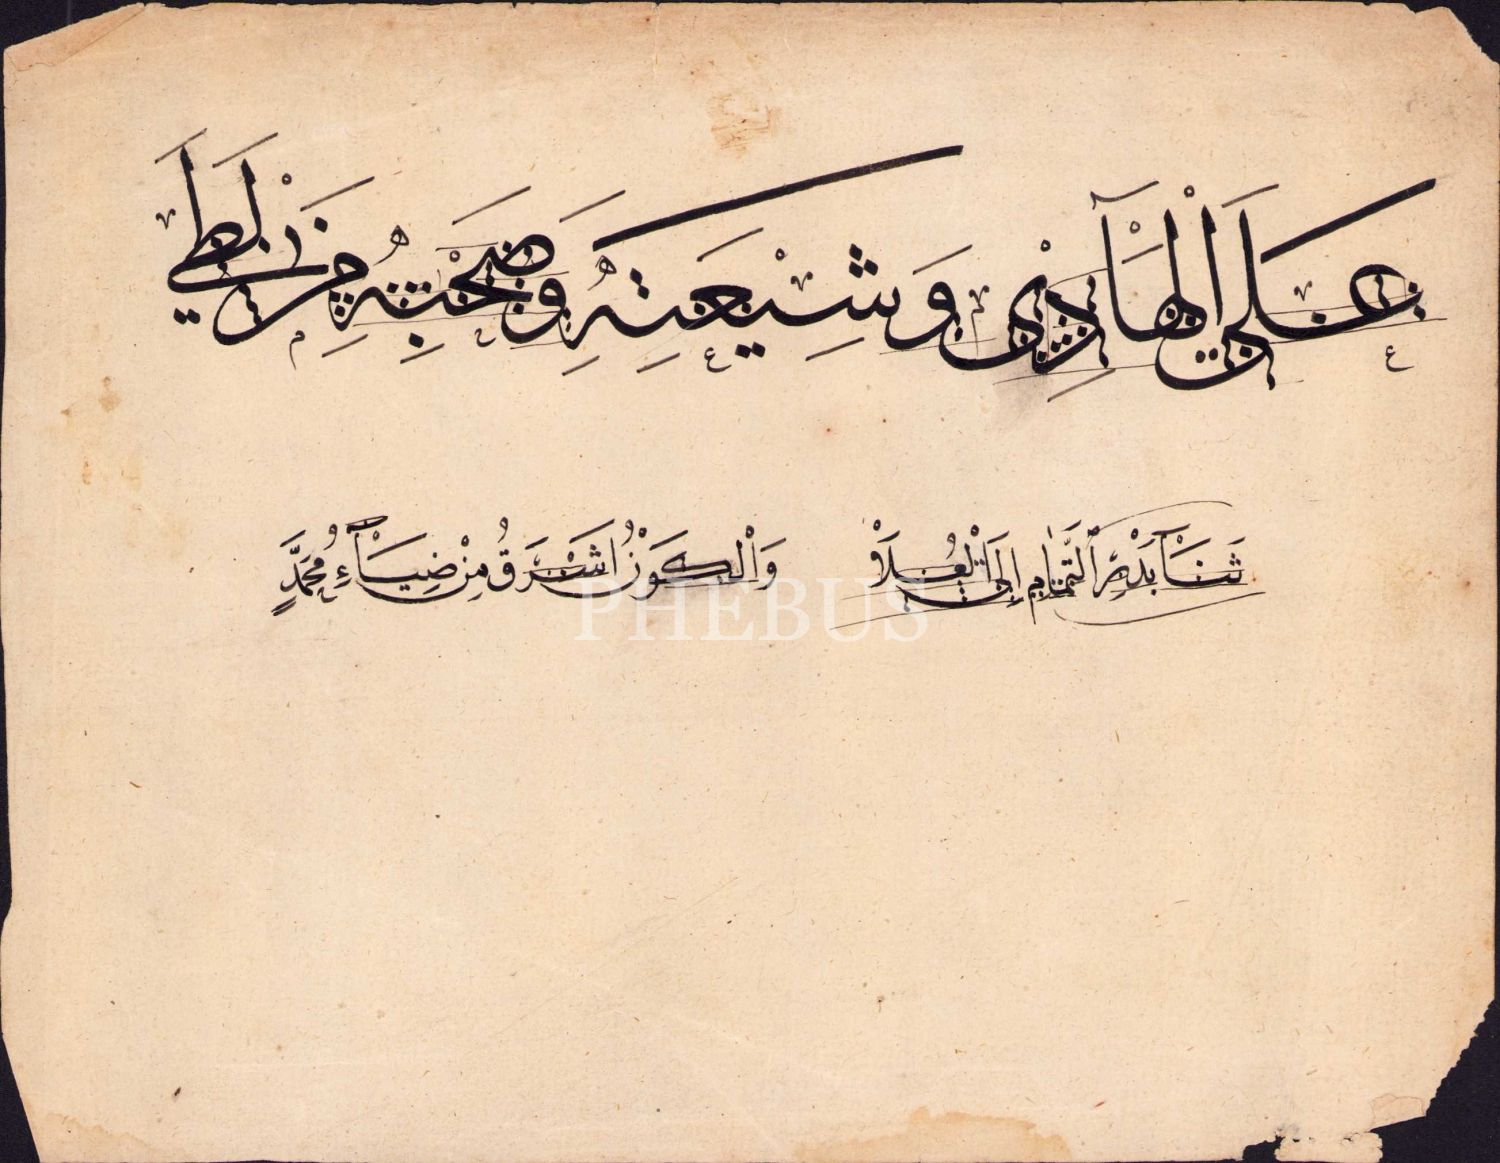 عَلَى الْهَادِي وَشِيعَتِهِ وَصَحْبِهِ مِنْ لَطَي
بَدْرِ التَّمَامِ إِلَى الْعُلَا وَالْكَوْنُ اَشْرَقَ مِنْ ضِيَاءِ مُحَمَّدٍ
PHEBUS